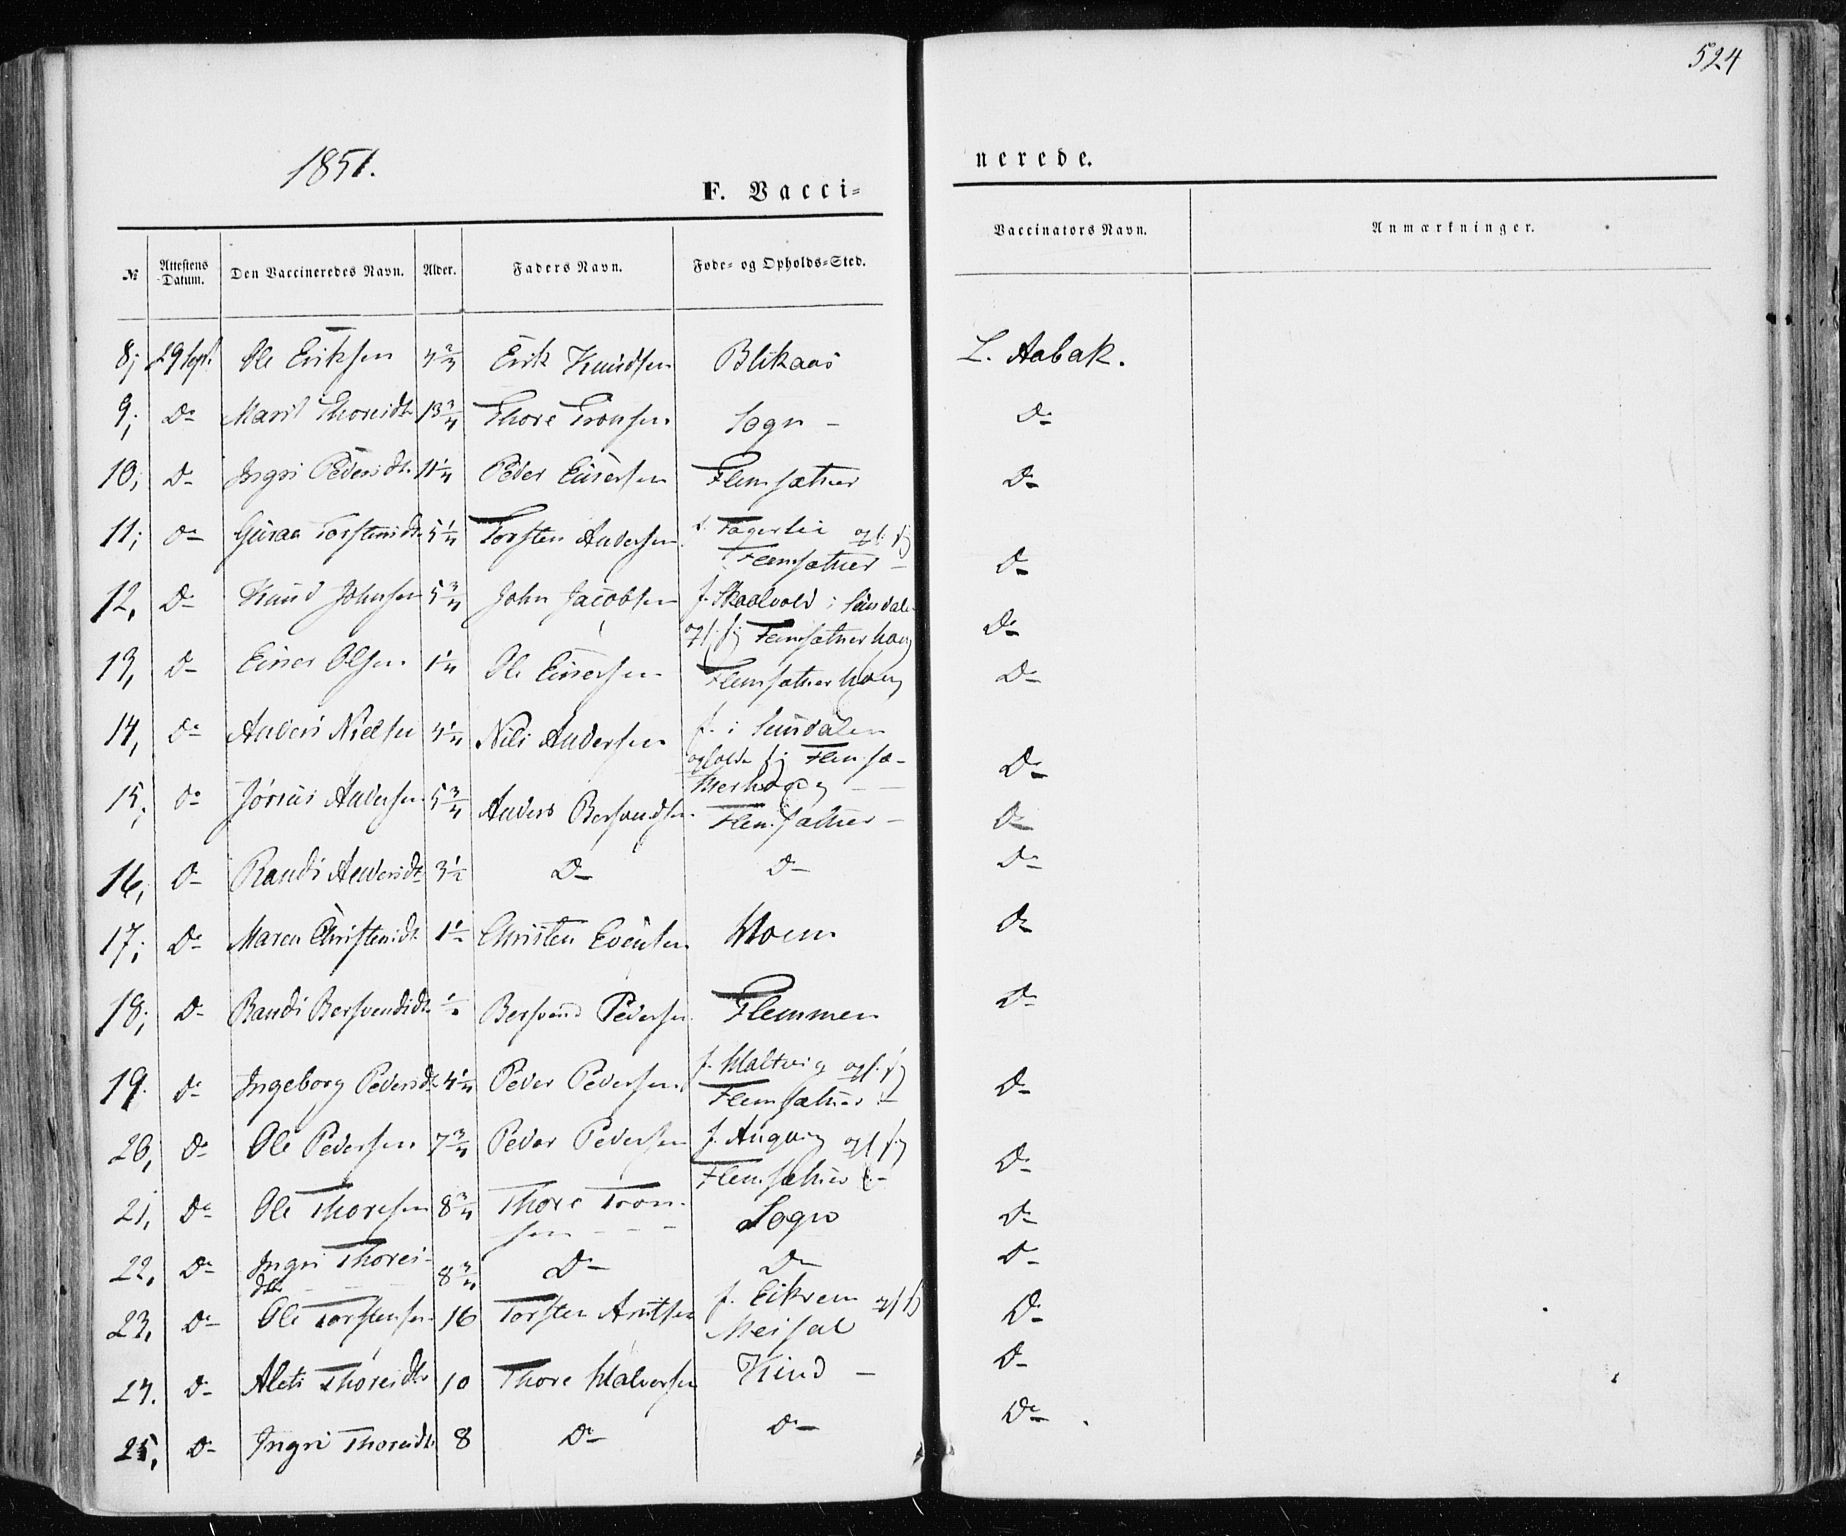 524
1851.
F. Vacci=
nerede.
№ Attestens Datum. Den Vaccineredes Navn. Alder. Faders Navn. Føde= og Opholds=Sted. Vaccinators Navn. Anmærkninger.
8, 29 Sept. Ole Eriksen 4 3/4 Erik Knudsen Blikaas L. Aabak.
9, Do Marit Thoresdt 13 3/4 Thore Tronsen Sogn - Do
10, Do Ingri Pedersdt. 11 1/4 Peder Einersen Flemsætner Do
11, Do Guraa Torstensdt 5 1/4 Torsten Andersen f. Fagerlie oph. sig
Flemsætner - Do
12, Do Knud Johnsen 5 3/4 John Jacobsen f. Skaalvold i Sundalen
oph. sig Flemsætnerhaug Do
13, Do Einer Olsen 1 1/4 Ole Einersen Flemsætnerhaug Do
14, Do Anders Nielsen 4 1/4 Nils Andersen f. i Sundalen
opholde sig Flemsæ-
tnerhaug - - Do
15, Do Jørius Andersen 5 3/4 Anders Bersvendsen Flemsætner - Do
16, Do Randi Andersdt 3 1/2 Do Do Do
17, Do Maren Christensdt 1 1/2 Christen Evensen Moen Do
18, Do Randi Bersvendsdt. 1/2 Bersvend Pedersen Flemmen Do
19. Do Ingeborg Pedersdt 4 1/4 Peder Pedersen f. Maltvig oph. sig
Flemsætner - Do
20, Do Ole Pedersen 7 3/4 Peder Pedersen f. Angvig oph. sig
Flemsætner - Do
21, Do Ole Thoresen 8 3/4 Thore Tron-
sen - - Sogn Do
22, Do Ingri Thores-
dtr - - 8 3/4 Do Do Do
23, Do Ole Torstensen 16 Torsten Arntsen f. Eikrem oph. sig
Meisal Do
24. Do Alet Thoresdt 10 Thore Halvorsen Hind - Do
25, Do Ingri Thoresdt 8 Do Do Do